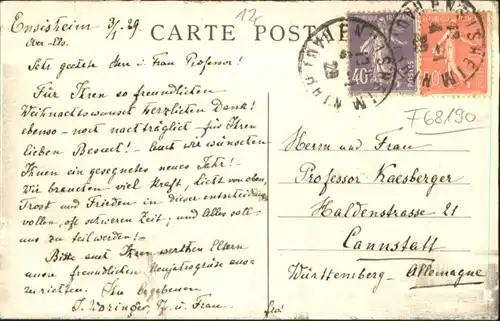 12
Ensisheim 3/1.29
CARTE POSTALE
Ober-Els.
Sehr geehrte Herr u. Frau Professor!
Für Ihren so freundlichen
Weihnachtswunsch herzlichen Dank!
ebenso - noch nachträglich - für Ihren
lieben Besuch! Auch wir wünschen
Ihnen ein gesegnetes neues Jahr!
Wir brauchen viel Kraft, Licht von oben,
Trost und Frieden in dieser entscheidungs
vollen, oft schweren Zeit; und Alles soll
uns zu teil werden! -
Bitte auch Ihren werthen Eltern
unsre freundlichen Neujahrsgrüsse
zurichten. Ihr ergebener
u. Frau.
40c
POSTES
ENSISHEIM
HAUT RHIN
F68190
Herrn und Frau
Professor Kaesberger
Haldenstrasse 21
Cannstatt
Württemberg - Allemagne